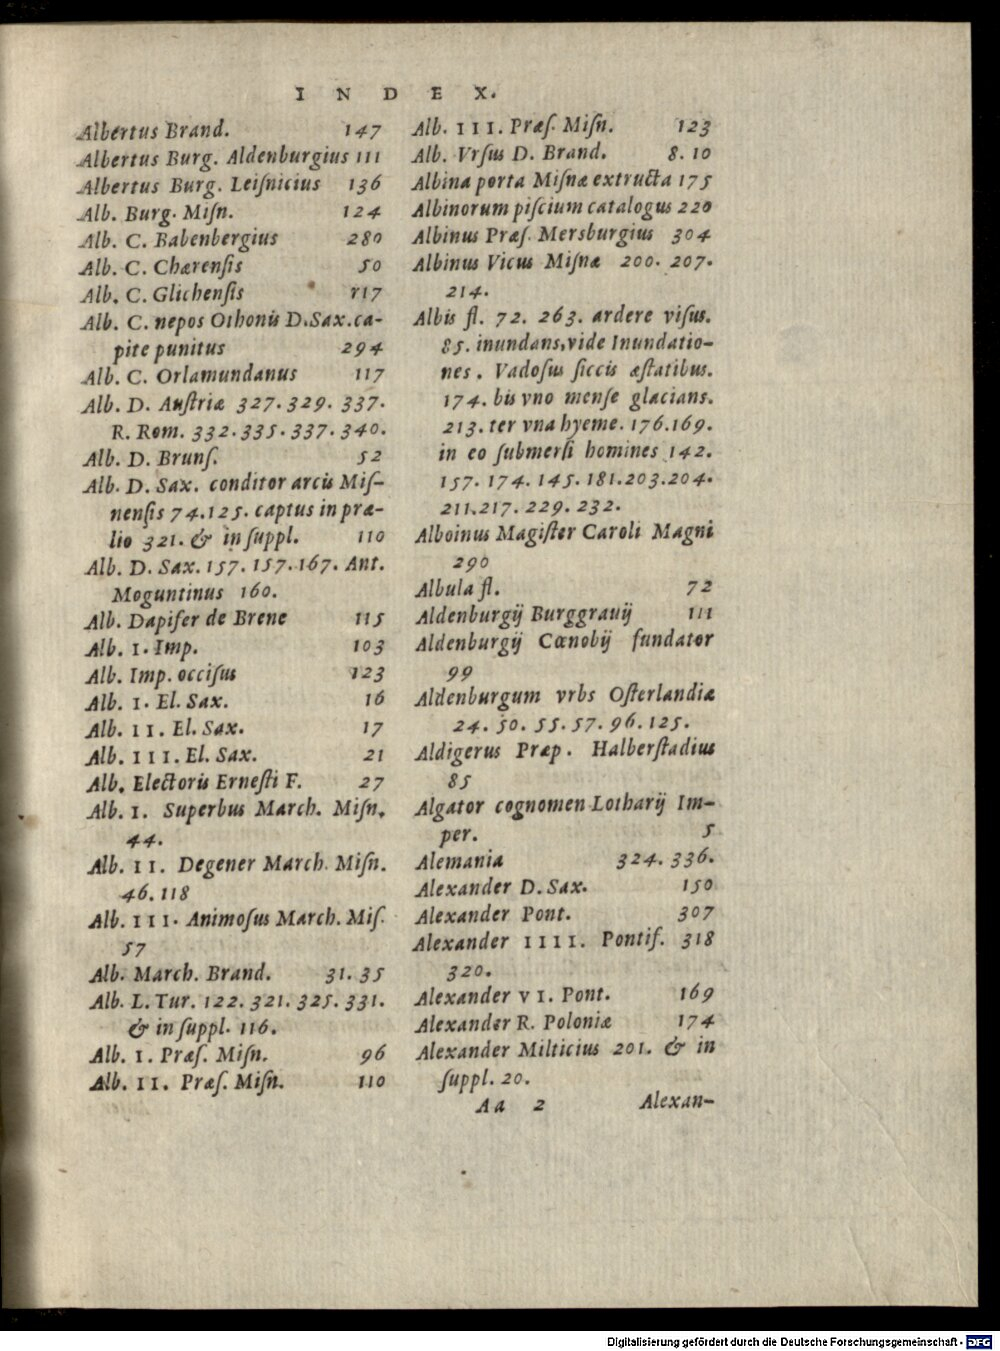 INDEX.
Albertus Brand. 147
Albertus Burg. Aldenburgius 111
Albertus Burg. Leiſnicius 136
Alb. Burg. Miſn. 124
Alb. C. Babenbergius 280
Alb. C. Chærenſis 50
Alb. C. Glichenſis 117
Alb. C. nepos Othonis D.Sax.ca-
pite punitus 294
Alb. C. Orlamundanus 117
Alb. D. Auſtriæ 327.329. 337.
R. Rom. 332.335.337.340.
Alb. D. Brunſ. 52
Alb. D. Sax. conditor arcis Miſ-
nenſis 74.125. captus in præ-
lio 321. & in ſuppl. 110
Alb. D. Sax. 157. 157.167. Ant.
Moguntinus 160.
Alb. Dapifer de Brene 115
Alb. I. Imp. 103
Alb. Imp. occiſus 123
Alb. I. El. Sax. 16
Alb. II. El. Sax. 17
Alb. III. El. Sax. 21
Alb. Electoris Erneſti F. 27
Alb. I. Superbus March. Miſn.
44.
Alb. II. Degener March. Miſn.
46.118
Alb. III. Animoſus March. Miſ.
57
Alb. March. Brand. 31. 35
Alb. L. Tur. 122. 321. 325. 331.
& in ſuppl. 116.
Alb. I. Præſ. Miſn. 96
Alb. II. Præſ. Miſn. 110
Alb. III. Præſ. Miſn. 123
Alb. Vrſus D. Brand. 8. 10
Albina porta Miſnæ extructa 175
Albinorum piſcium catalogus 220
Albinus Præſ. Mersburgius 304
Albinus Vicus Miſnæ 200. 207.
214.
Albis fl. 72. 263. ardere viſus.
85. inundans,vide Inundatio-
nes. Vadoſus ſiccis æſtatibus.
174. bis vno menſe glacians.
213. ter vna hyeme. 176.169.
in eo ſubmerſi homines 142.
157. 174. 145. 181.203.204.
211.217. 229. 232.
Alboinus Magiſter Caroli Magni
290
Albula fl. 72
Aldenburgij Burggrauij 111
Aldenburgij Cœnobij fundator
99
Aldenburgum vrbs Oſterlandiæ
24. 50. 55. 57. 96. 125.
Aldigerus Præp. Halberſtadius
85
Algator cognomen Lotharij Im-
per. 5
Alemania 324. 336.
Alexander D. Sax. 150
Alexander Pont. 307
Alexander IIII. Pontif. 318
320.
Alexander VI. Pont. 169
Alexander R. Poloniæ 174
Alexander Milticius 201. & in
ſuppl. 20.
Aa 2 Alexan-
Digitalisierung gefördert durch die Deutsche Forschungsgemeinschaft - DFG